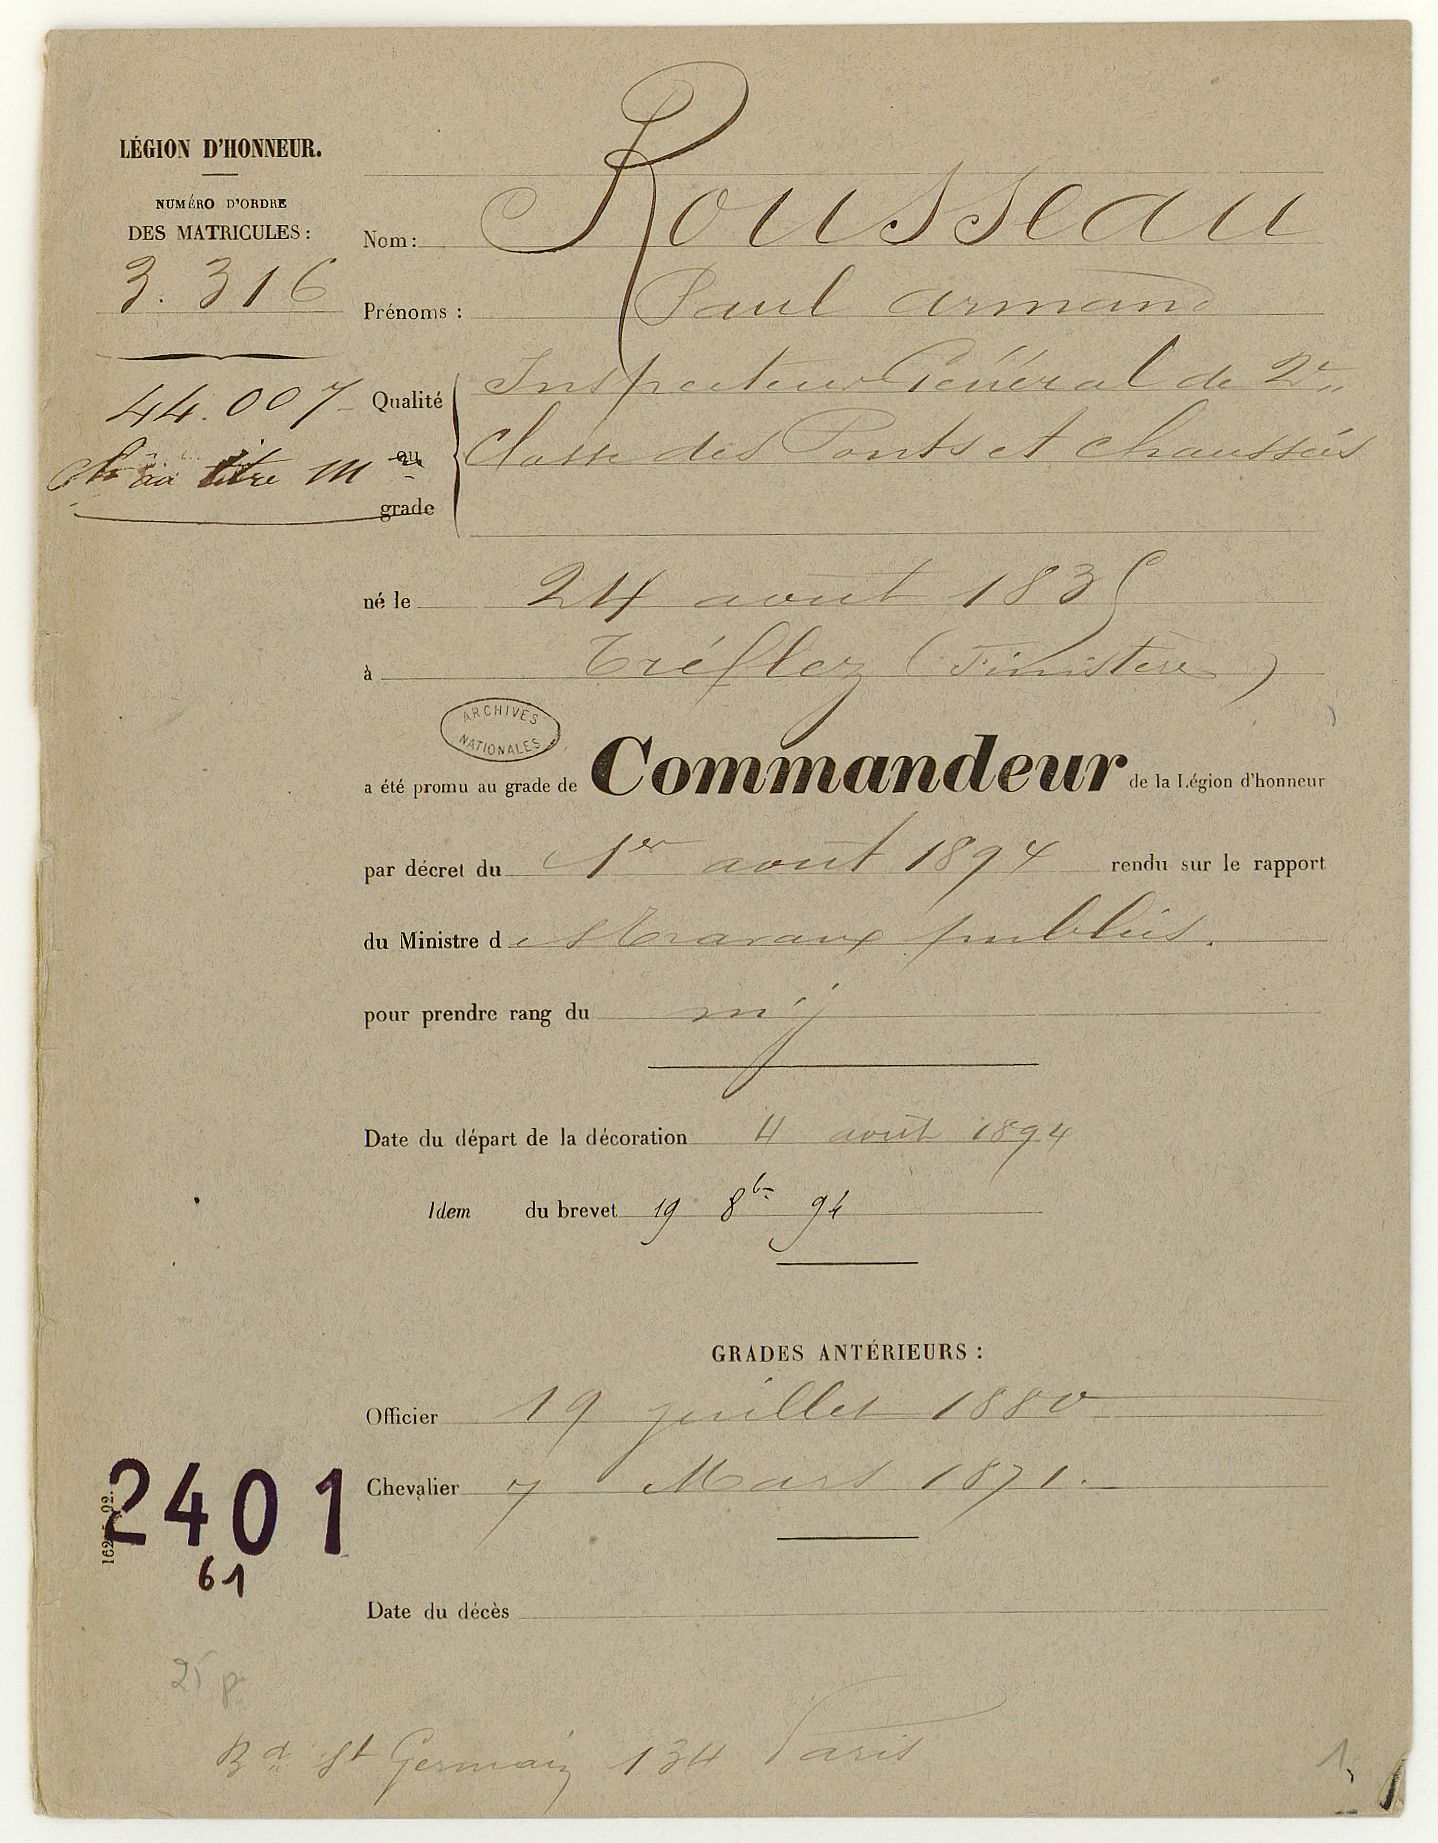 LÉGION D'HONNEUR.
NUMÉRO D'ORDRE
DES MATRICULES :
3.316
44.007
au titre
Nom : Rousseau
Prénoms : Paul Armand
Qualité ou grade
Inspecteur Général de 2e
Classe des Ponts et Chaussées
né le 24 août 1835
à Tréflez (Finistère)
ARCHIVES NATIONALES
a été promu au grade de Commandeur de la Légion d'honneur
par décret du 1er août 1894 rendu sur le rapport
du Ministre des travaux publics.
pour prendre rang du
Date du départ de la décoration 4 août 1894
Idem du brevet 19 8bre 94
GRADES ANTÉRIEURS :
Officier 19 juillet 1880
Chevalier 7 Mars 1871.
2401
61
Date du décès
25 p
Bd St Germain 134 Paris
1